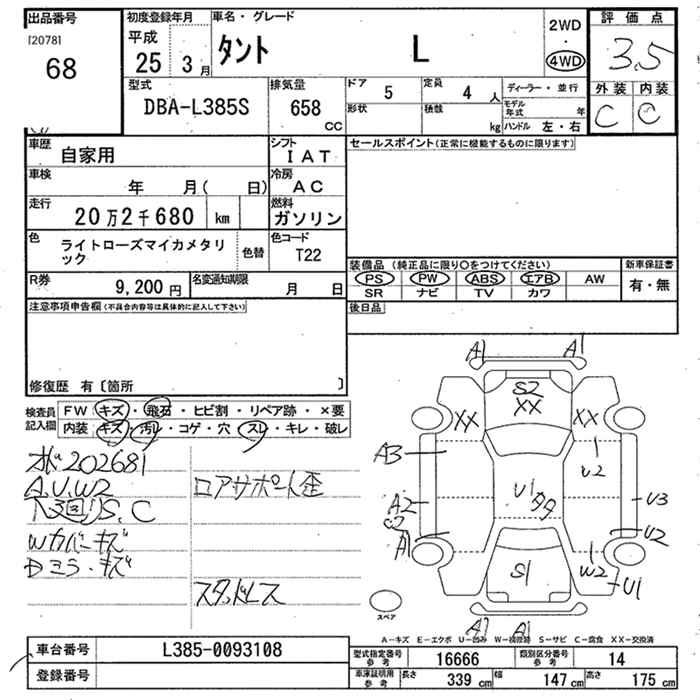 出品番号
[2078]
68
初度登録年月
平成
25 3月
車名・グレード
タント L
2WD
・
4WD
評価点
3.5
外装 内装
C C
型式
DBA-L385S
排気量
658 CC
ドア 5
定員 4 人
形状
積載 kg
ディーラー・並行
モデル年式 年
ハンドル 左・右
車歴
自家用
シフト
IAT
車検
年 月( 日)
冷房
AC
走行
20万2千680 km
燃料
ガソリン
色
ライトローズマイカメタリック
色替
色コード
T22
R券
9,200円
名変通知期限
月 日
セールスポイント(正常に機能するものに限ります)
装備品(純正品に限り○をつけてください)
PS PW ABS エアB AW
SR ナビ TV カワ
新車保証書
有・無
後日品
注意事項申告欄(不具合内容等は具体的に記入して下さい)
修復歴 有〔箇所 〕
検査員記入欄
FW キズ・飛石・ヒビ割・リペア跡・×要
内装 キズ・汚レ・コゲ・穴・スレ・キレ・破レ
202681
A.U.W2
S.C
Wカバーキズ
Dミラーキズ
ロアサポート歪
スタッドレス
A1 A1
S2
XX
XX XX
A3
U2
U1
タタ
A2
U3
U2
A1
W2
U1
S1
A1 A1
スペア
A-キズ E-エクボ U-凹み W-補修跡 S-サビ C-腐食 XX-交換済
車台番号
L385-0093108
登録番号
型式指定番号 参考
16666
類別区分番号 参考
14
車庫証明用 参考
長さ 339 cm
幅 147 cm
高さ 175 cm